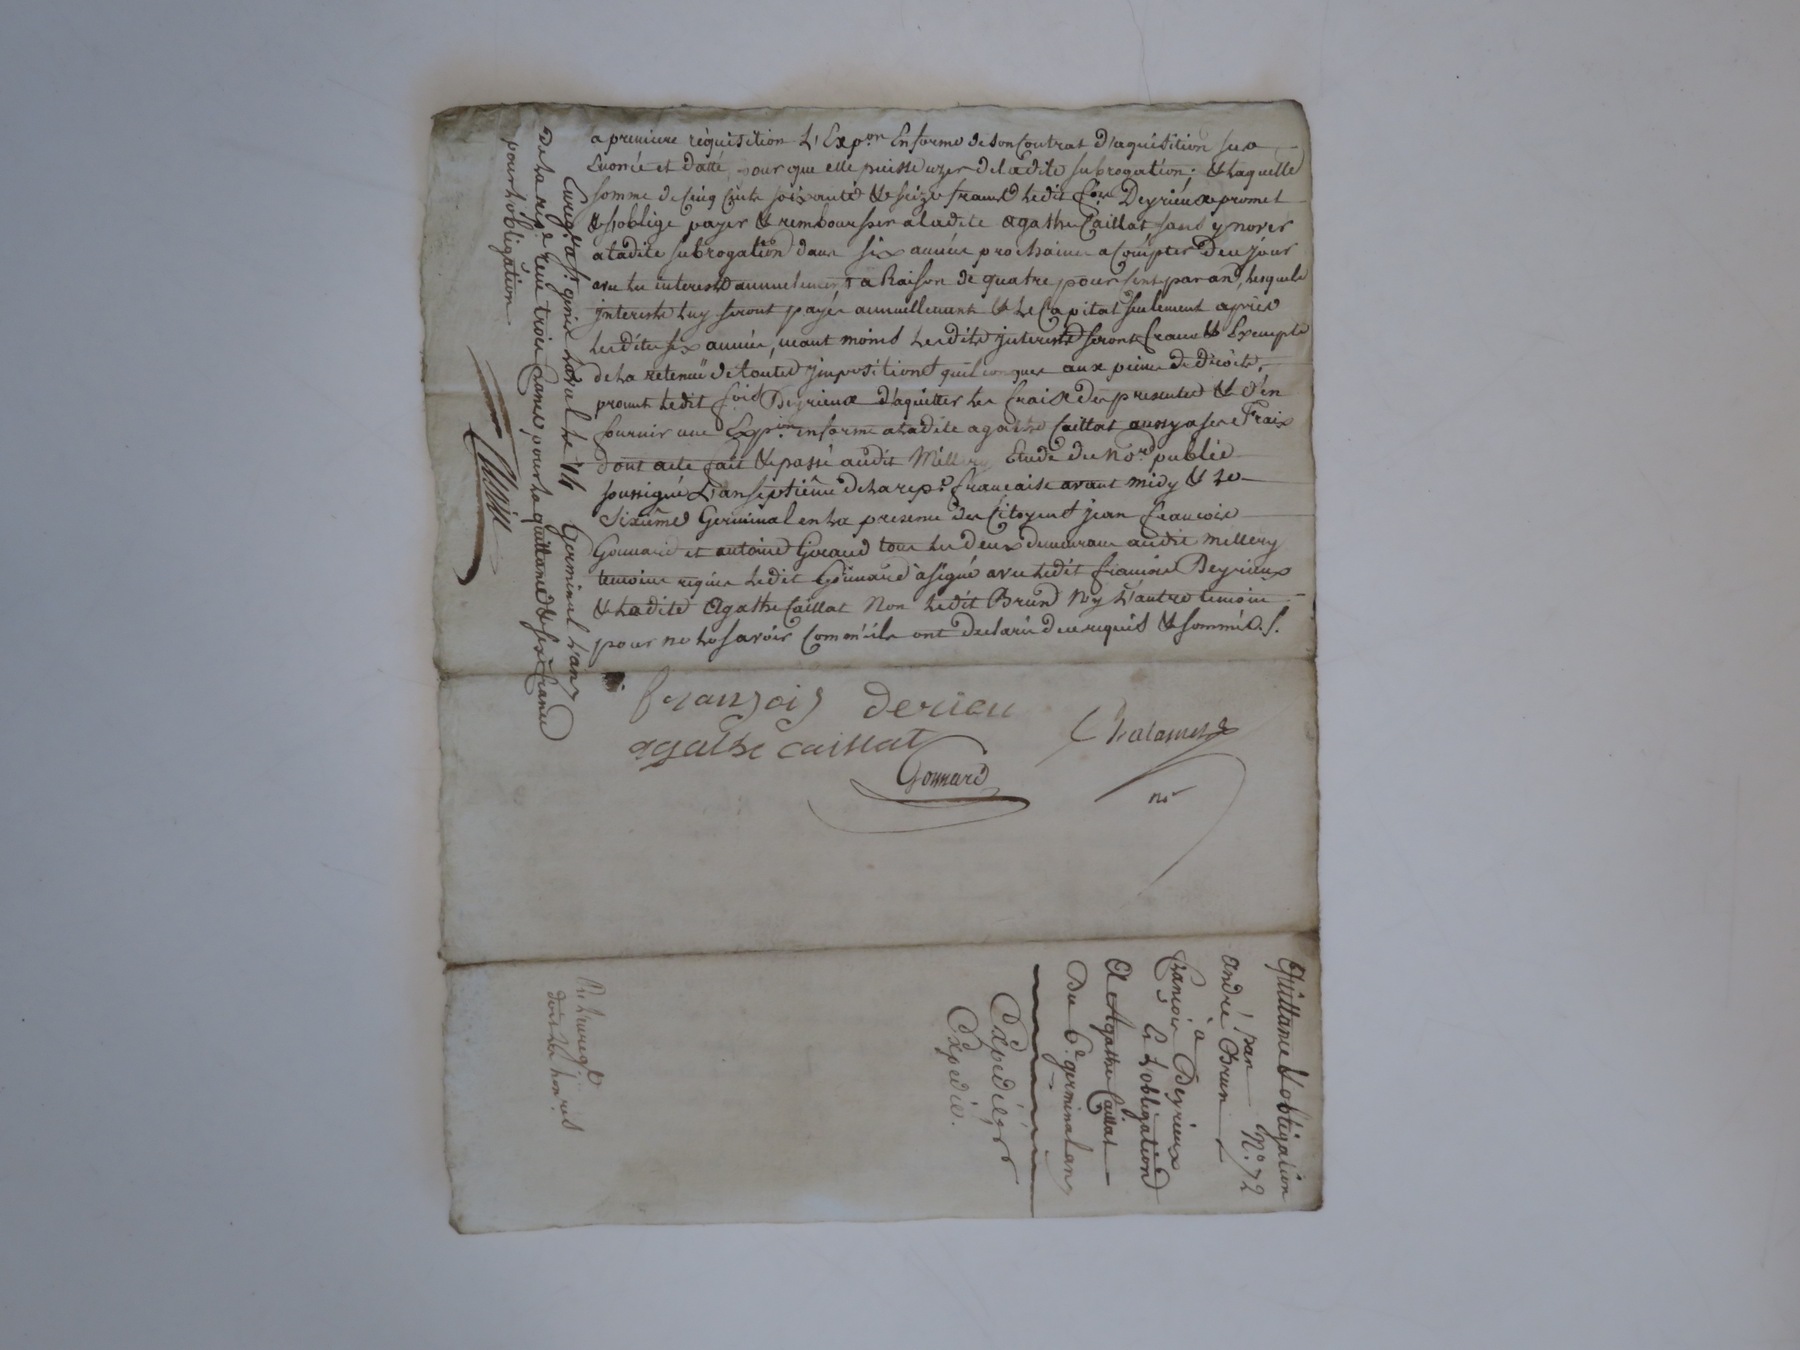 a premiere réquisition L'Exp.on En forme de son Contrat d'aquisition sus
Enoncé et datté pour que elle puisse uzer de ladite subrogation; & laquelle
somme de Cinq Cents soixante & seize francs ledit f.ois Deyrieux promet
& s'oblige payer & rembourser a ladite Agathe Caillat sans y nover
a ladite subrogation dans six années prochaines a Compter de ce jour
avec les interests annuelement a Raison de quatre pour Cent par an, lesquels
jnterests luy seront payés annuellement & le Capital seulement après
lesdites six années, neant moins lesdits jnterests seront francs & Exempts
de la retenuë de toutes jmpositions quelconques aux peines de droits,
promet ledit fois Deyrieux d'aquitter les fraix des presentes & d'en
fournir une Exp.ion en forme a ladite agathe Caillat aussy a ses Fraix
Dont acte fait & passé audit Millery Etude du no.re public
soussigné L'an septiême de la rep.e francaise avant midy & le
sixiême Germinal en la presence des Citoyens jean francois
Gonnard et antoine Giraud tous les deux demeurans audit Millery
temoins requis ledit Gonnard a signé avec ledit francois Deyrieux
& ladite Agathe Caillat Non ledit Brun Ny L'autre temoin
pour ne le savoir Comm'ils ont declaré de ce requis & sommés./.
fransois derieu
agathe caillat
Chalamel
Gonnard
no.re
Enreg.tré a S.t genis Laval le 14 Germinal L'an 7
de la rep.e reçu trois francs pour la quittance & six francs
pour L'obligation
Quittance & obligation
par N.o 72
andré Brun
à
francois Deyrieux
Et L'obligation
A Agathe Caillat
Du 6.e germinal an 7
Expédiée gr
Expédié.